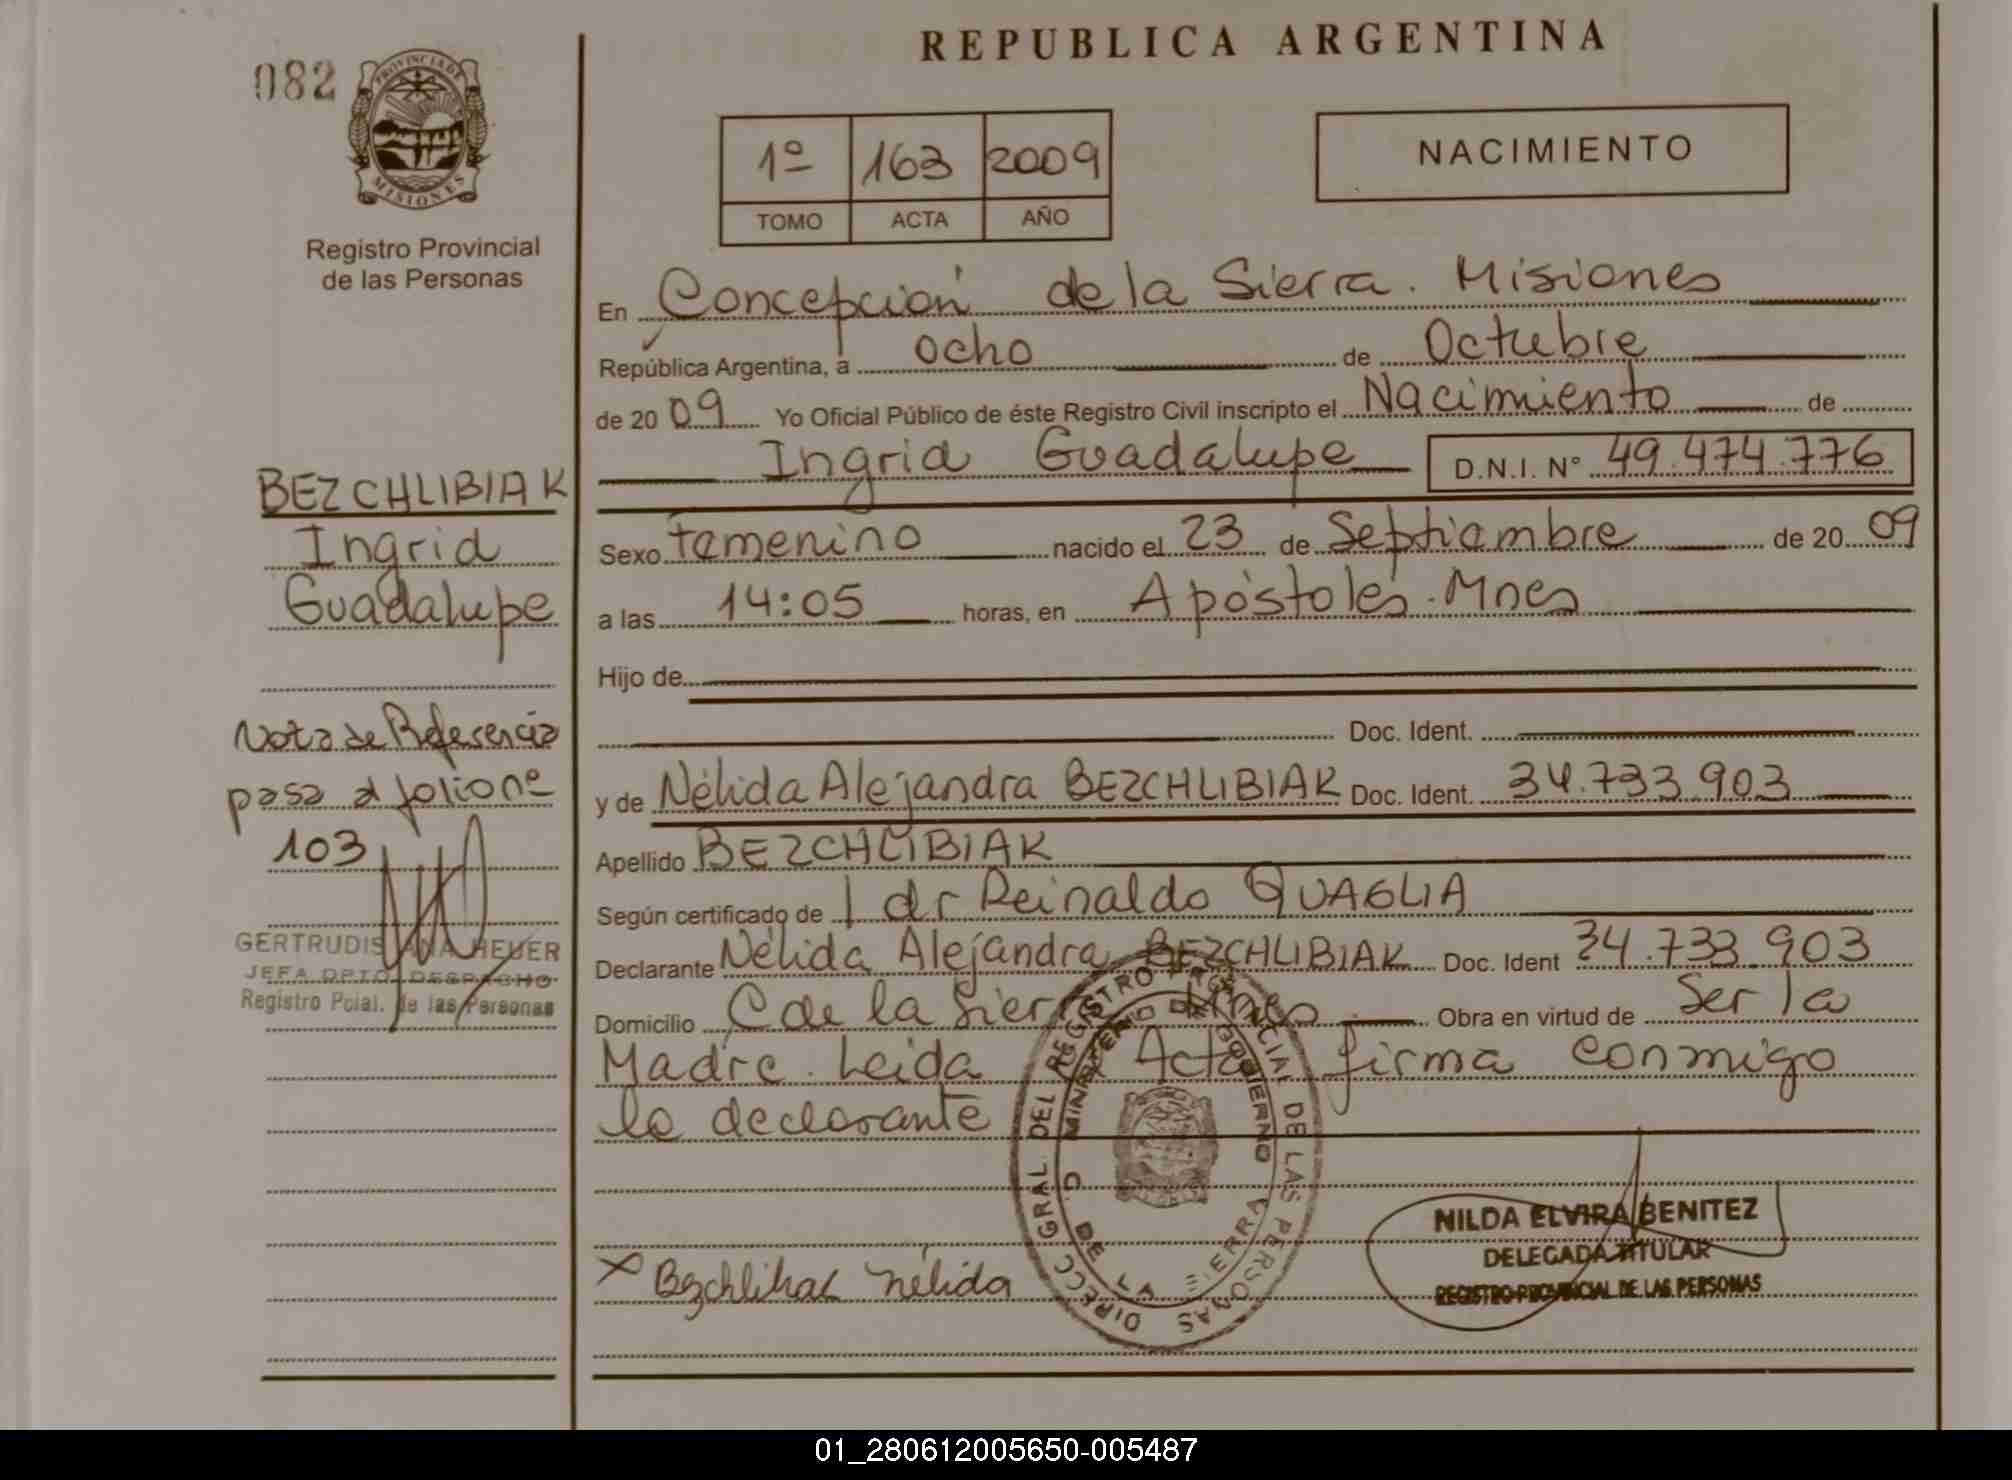 082
PROVINCIA DE
MISIONES
Registro Provincial
de las Personas
REPUBLICA ARGENTINA
1º 163 2009
TOMO ACTA AÑO
NACIMIENTO
En Concepción de la Sierra. Misiones
República Argentina, a ocho de Octubre
de 20 09 Yo Oficial Público de éste Registro Civil inscripto el Nacimiento de
Ingrid Guadalupe D.N.I. Nº 49.474.776
Sexo femenino nacido el 23 de Septiembre de 20 09
a las 14:05 horas, en Apóstoles. Mnes
Hijo de
Doc. Ident.
y de Nélida Alejandra BEZCHLIBIAK Doc. Ident. 34.733.903
Apellido BEZCHLIBIAK
Según certificado de dr Reinaldo QUAGLIA
Declarante Nélida Alejandra BEZCHLIBIAK Doc. Ident 34.733.903
Domicilio C de la Sierra Mnes Obra en virtud de Ser la
Madre. Leida Acta firma conmigo
la declarante
Nélida
BEZCHLIBIAK
Ingrid
Guadalupe
Nota de Referencia
pasa al folio nº
103
GERTRUDIS ANA HEUER
JEFA DPTO. DESPACHO
Registro Pcial. de las Personas
DIRECC GRAL. DEL REGISTRO PROVINCIAL DE LAS PERSONAS
MINISTERIO DE GOBIERNO
C. DE LA SIERRA
NILDA ELVIRA BENITEZ
DELEGADA TITULAR
REGISTRO PROVINCIAL DE LAS PERSONAS
01_280612005650-005487